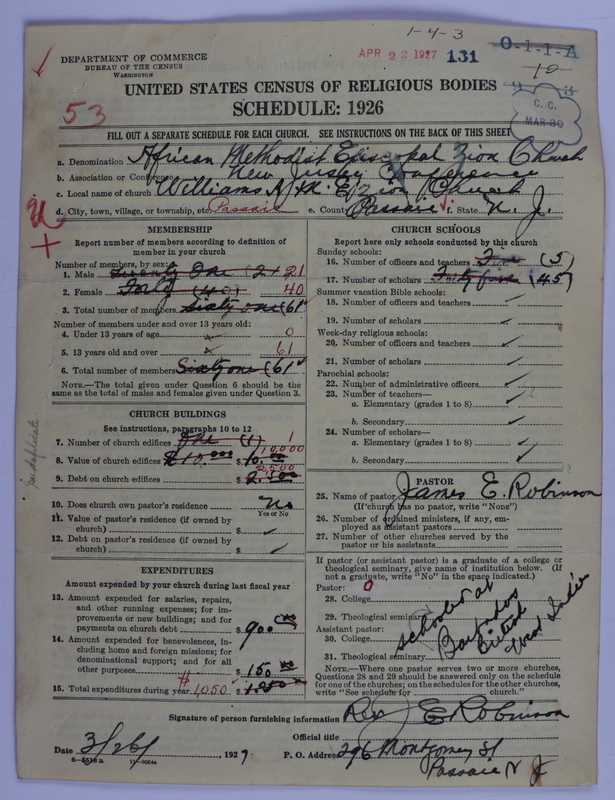 1-4-3
DEPARTMENT OF COMMERCE
BUREAU OF THE CENSUS
WASHINGTON
APR 22 1927 131 0-1-1-A
53
UNITED STATES CENSUS OF RELIGIOUS BODIES
SCHEDULE: 1926
C. C.
MAR 30
FILL OUT A SEPARATE SCHEDULE FOR EACH CHURCH. SEE INSTRUCTIONS ON THE BACK OF THIS SHEET
a. Denomination African Methodist Episcopal Zion Church
b. Association or Conference New Jersey Conference
c. Local name of church Williams A. M. E. Zion Church
d. City, town, village, or township, etc. Passaic e. County Passaic f. State N. J.
MEMBERSHIP
Report number of members according to definition of
member in your church
Number of members, by sex:
1. Male Twenty One (21 21
2. Female Forty (40) 40
3. Total number of members Sixty one (61
Number of members under and over 13 years old:
4. Under 13 years of age 0
5. 13 years old and over 61
6. Total number of members Sixty one (61
NOTE.—The total given under Question 6 should be the
same as the total of males and females given under Question 3.
CHURCH BUILDINGS
See instructions, paragraphs 10 to 12
7. Number of church edifices One (1) 1
8. Value of church edifices $10,000 $ 10,000
9. Debt on church edifices $ 2,500 2,500
10. Does church own pastor's residence No
Yes or No
11. Value of pastor's residence (if owned by
church) $
12. Debt on pastor's residence (if owned by
church) $
EXPENDITURES
Amount expended by your church during last fiscal year
13. Amount expended for salaries, repairs,
and other running expenses; for im-
provements or new buildings; and for
payments on church debt $ 900 00
14. Amount expended for benevolences, in-
cluding home and foreign missions; for
denominational support; and for all
other purposes $ 150 00
15. Total expenditures during year 1,050 $
CHURCH SCHOOLS
Report here only schools conducted by this church
Sunday schools:
16. Number of officers and teachers Five (5)
17. Number of scholars Forty five (45)
Summer vacation Bible schools:
18. Number of officers and teachers
19. Number of scholars
Week-day religious schools:
20. Number of officers and teachers
21. Number of scholars
Parochial schools:
22. Number of administrative officers
23. Number of teachers—
a. Elementary (grades 1 to 8)
b. Secondary
24. Number of scholars—
a. Elementary (grades 1 to 8)
b. Secondary
PASTOR
25. Name of pastor James E. Robinson
(If church has no pastor, write "None")
26. Number of ordained ministers, if any, em-
ployed as assistant pastors
27. Number of other churches served by the
pastor or his assistants
If pastor (or assistant pastor) is a graduate of a college or
theological seminary, give name of institution below. (If
not a graduate, write "No" in the space indicated.)
Pastor:
28. College
29. Theological seminary
Assistant pastor:
30. College
31. Theological seminary
Schooled at
Barbados
British
West Indie
NOTE.—Where one pastor serves two or more churches,
Questions 28 and 29 should be answered only on the schedule
for one of the churches; on the schedules for the other churches,
write "See schedule for church."
Signature of person furnishing information Rev J E Robinson
Official title
Date 3/26/, 1927 P. O. Address 296 Montgomery St
8-5518a
Passaic N J